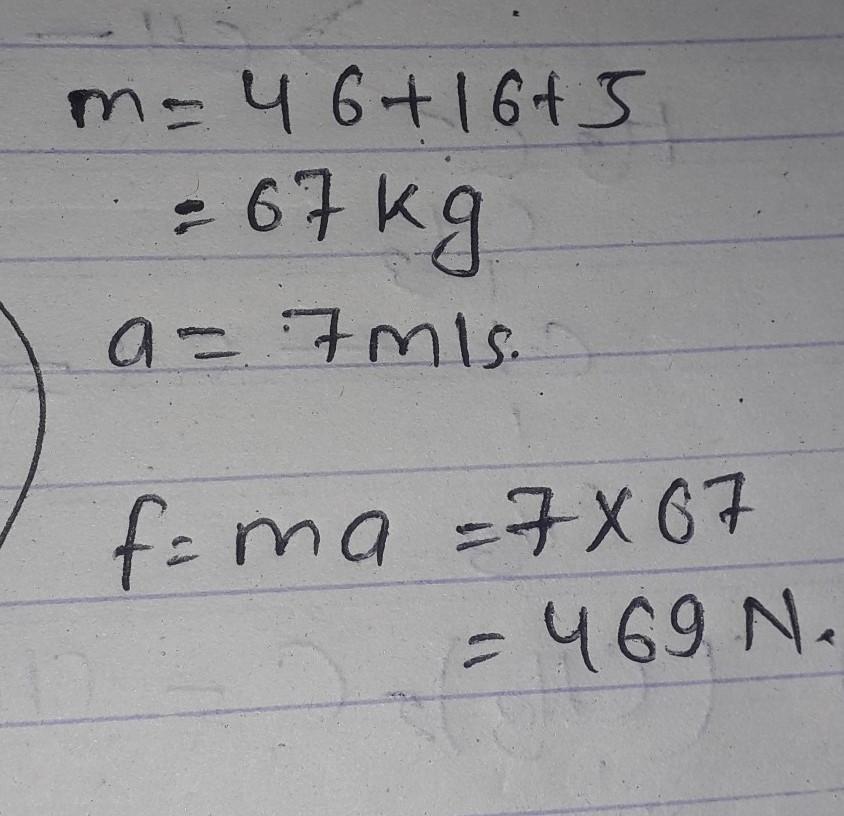 m = 46+16+5
= 67 kg
a = 7m/s.
f = ma = 7 × 67
= 469 N.